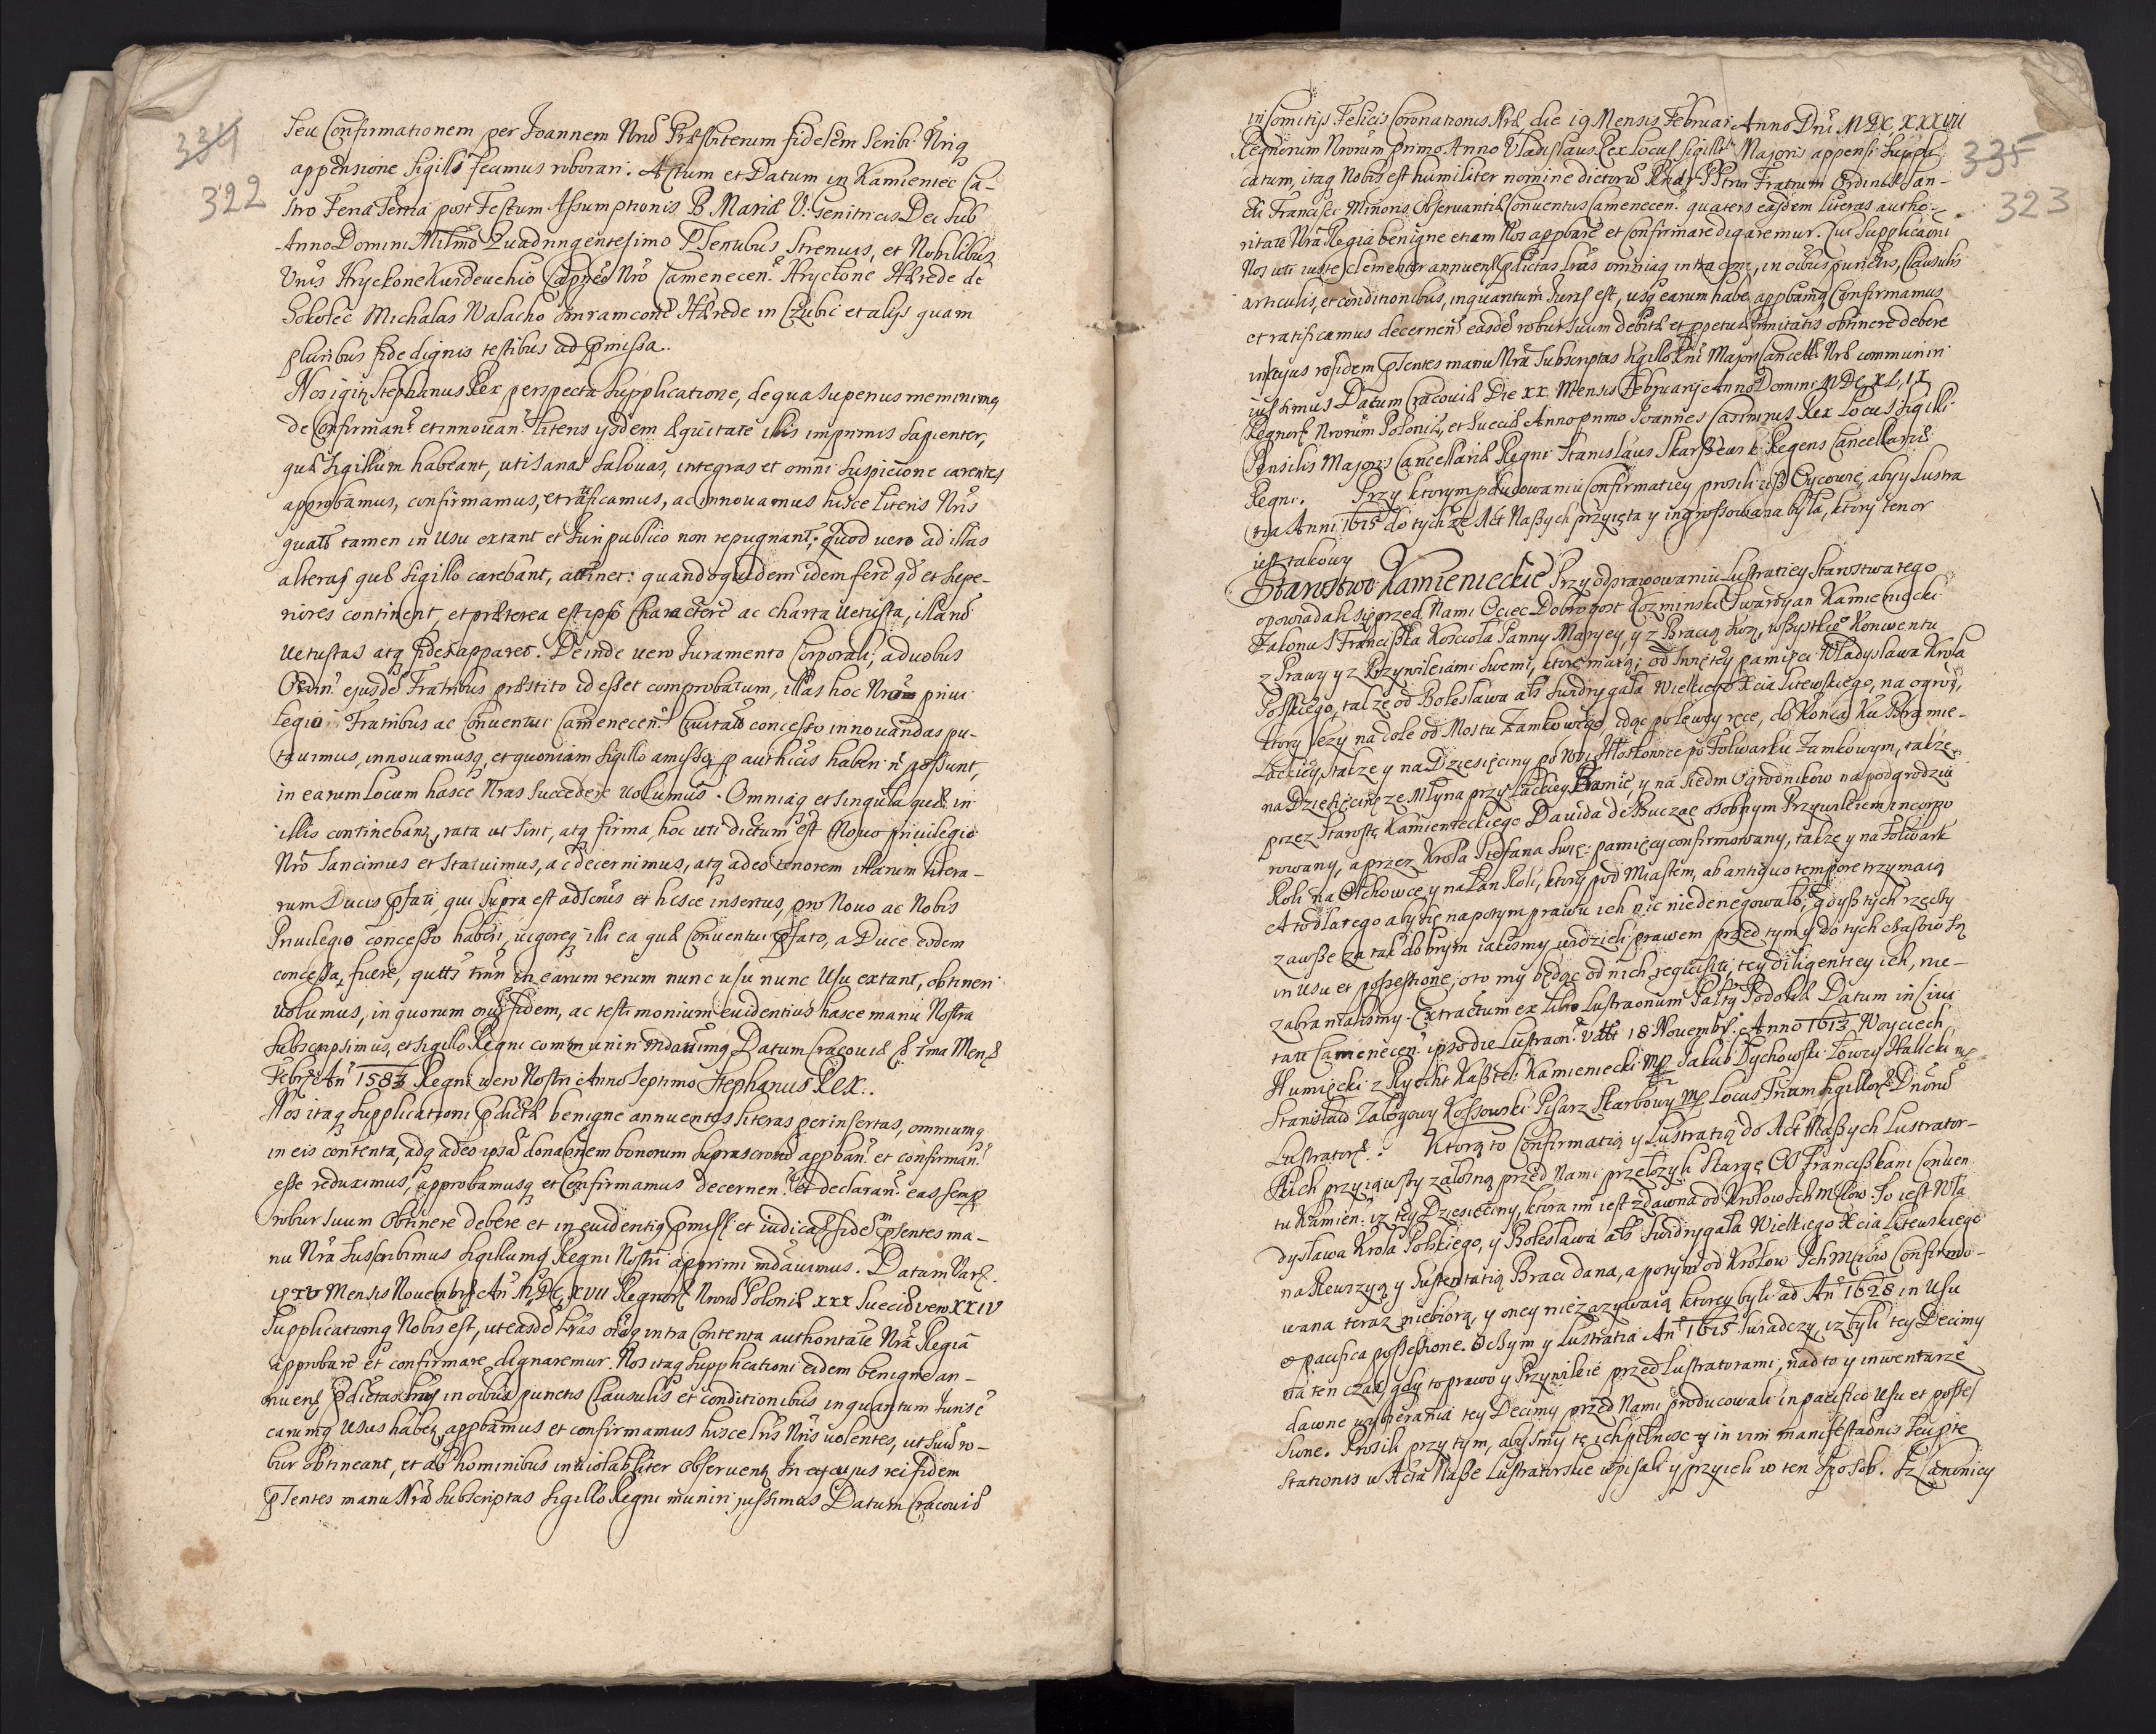 334
322
seu Confirmationem per Joannem Nrũ Præsbiterum fidelem scribi Nriq
appensione Sigilli fecimus roborari. Actum et Datum in Kamieniec Ca-
stro Feria Tertia post Festum Assumptionis B Mariæ V. Genitricis Dei sub
Anno Domini Millmo Quadringentesimo Psentibus Strenuis, et Nobilibus
Viris Hryckone Kierdeuchio Capneo Nro Camenecen. Hryckone Hærede de
Sokolec Michalas Walacho Hærede in Czubic et alijs quam
pluribus fide dignis testibus ad pmissa.
Nos igitz Stephanus Rex perspecta supplicatione, de qua superius meminimg
de Confirman. et innouan. literis ysdem æquitate illis imprimis sapienter,
quæ sigillum habeant, uti sanas saluas, integras et omni suspicione carentes
approbamus, confirmamus, et ratificamus, ac innouamus hisce literis Nris
quats tamen in usu extant et Juri publico non repugnant; quod uero ad illas
alteras quæ sigillo carebant, attinet: quandoquidem idem fere qd et supe-
riores continent, et præterea est ipso Charactere ac charta uetusta, illarũ
uetustas atq fides apparet. Deinde uero Juramento Corporali, a duobus
Ordin. ejusdẽ Fratribus præstito id esset comprobatum, illas hoc Nro priui
legio Fratribus ac Conuentui Camenecen. Ciuitats concesso innouandas pu-
tauimus, innouamusq, et quoniam sigillo amisso p authicis haberi ñ possunt,
in earum locum hasce Nras succedere uolumus. Omniaq et singula quæ in
illis continebanz, rata ut sint, atq firma, hoc uti dictum est Nouo priuilegio
Nro sancimus et statuimus, ac decernimus, atq adeo tenorem illarum litera-
rum Ducis pfati, qui supra est adscrius et hisce insertus, pro Nouo ac Nobis
Priuilegio concesso haberi, uigoreq illi ea quæ Conuentui pfato, a Duce eodem
concessa fuere, quatts tmn in earum rerum nunc usu nunc usu extant, obtineri
uolumus, in quorum oium fidem, ac testimonium euidentius hasce manu Nostra
subscripsimus, et sigillo Regni communiri mdauimq Datum Cracouiæ 1ma Mens
Febr. An 1583 Regni uero Nostri Anno Septimo Stephanus Rex.
Nos itaq supplicationi pdictæ benigne annuentes literas perinsertas, omniumq
in eis contenta, adq adeo ipsã donaõnem bonorum suprascrorũ appban. et confirman.
esse reduximus, approbamusq et Confirmamus decernen. et declaran. eas semp
robur suum Obtinere debere et in euidentiq pmiss et iudica fidẽ psentes ma-
nu Nra suscribimus sigillumq Regni Nostri apprimi mdauimus. Datum Vars.
XV Mensis Nouembris An MDC, XVII Regnorũ Nrorũ Poloniæ XXX Sueciæ uero XXIV
Supplicatumq Nobis est, ut easdẽ Lras oiaq intra Contenta authoritate Nra Regiã
approbare et confirmare dignaremur. Nos itaq supplicationi eidem benigne an-
nuens pdictas Lras in oibus punctis Clausulis et conditionibus in quantum Juris ẽ
earumq usus habez, appbamus et confirmamus hisce Lris Nris uolentes, ut suũ ro-
bur obtineant, et ab hominibus inuiolabliter obseruenz In cujus rei fidem
psentes manu Nrã subscriptas sigillo Regni muniri jussimus Datum Cracouiæ
335
323
in Comitijs Felicis Coronationis Nræ die 19 Mensis Februari Anno Dni MDC, XXXIII
Regnorum Nrorum Primo Anno Vladislaus Rex Locus Sigilli Majoris appensi Suppli
catum, itaq Nobis est humiliter nomine dictorũ Rndor PPtrũ Fratrum Ordinis San-
cti Francisci Minoris Obseruantiæ Conuentus Camenecen. quaters easdem Literas autho-
ritate Nra Regia benigne etiam Nos appbare et Confirmare digaremur. Cui Supplicaõni
Nos uti iuste clementer annuens pdictas Lras omniaq intra cont., in oibus punctis, Clausulis
articulis, et conditionibus, in quantum Juris est, usq earum habez, appbamq Confirmamus
et ratificamus decernens easdẽ robur suum debitæ et ppetuæ firmitatis obtinere debere
in cujus rei fidem psentes manu Nra subscriptas sigillo Rni Majoris Cancell. Nræ communiri
iussimus Datum Cracouiæ Die XX Mensis Februarij Anno Domini MDC, XL, IX
Regnorũ Nrorum Poloniæ, et Sueciæ Anno primo Joannes Casimirus Rex Locus Sigilli
Pensilis Majoris Cancellariæ Regni Stanislaus Skarszewski Regens Cancellariæ
Regni. Przy ktorym pducowaniu Confirmatiey prosili ciß Oycowie, aby y Lustra
tia Anni 1615 do tych że Akt Naßych przyięta y ingrossowana była, ktory tenor
iest takowy
Starostwo Kamienieckie Przy odprawowaniu Lustratiey Starostwa tego
opowiadali się przed Nami Ociec Dobrogost Kozminski Gwardyan Kamieniecki
Zakonu S Franciszka Koscioła Panny Maryey, y z Bracią swą, wßystkiego Konwentu
z Prawy y z Przywileiami swemi, ktore maią; od swiętey pamięci Władysława Krola
Polskiego, także od Bolesława abo Swidrygała Wielkiego Xcia Litewskiego, na ogrod,
ktory leży na dole od Mostu Zamkowego idąc po lewey ręce, do Konca ku Bramie-
Lackiey, także y na Dziesięciny po Wsi Hłoskowce po Folwarku Zamkowym, także
na Dziesięcinę ze Młyna przy Lackiey Bramie, y na Siedm Ogrodnikow na podgrodziu
przez Starostę Kamienieckiego Dawida de Buczac osobnym Przywileiem incorpo
rowany, a przez Krola Stefana Swię: pamięcy confirmowany, także y na Folwark
Roli na Olchowce, y na Łan Roli, ktory pod Miastem, ab antiquo tempore trzymaią
A to dlatego aby się na potym prawu ich nic niedenegowało, gdyß tych rzeczy
zawße za tak dobrym iakosmy widzieli prawem przed tym y do tych czasow są
in usu et possessione; oto my będąc od nich requisiti, tey diligentiey ich, nie-
zabranialismy. Extractum ex Libro Lustraonum Palts Podoliæ Datum in Ciui
tate Camenecen. ipso die Lustraon. Vtt 18 Nouembr. Anno 1613 Woyciech
Humięcki z Rycht Kasztel. Kamieniecki mp Jakub Dychowski Łowczy Halicki mp
Stanisław Zależowy Kossowski Pisarz Skarbowy mp Locus Trium Sigillorũ Dnorũ
Lustratorũ. Ktorą to Confirmatią y Lustratią do Akt Naßych Lustrator-
skich przyiąwßy załosną przed Nami przełożyli Skargę OO Franciszkani Conuen
tu Kamien: iz tey Dziesięciny, ktora im iest zdawna od Krolow Ich Mciow. To iest Wła
dysława Krola Polskiego, y Bolesława abo Swidrygała Wielkiego Xcia Litewskiego
na Rewerzyą y Sustentatią Braci dana, a potym od Krolow Ich Mciow Confirmo-
wana teraz niebiorą, y oney niezazywaią ktorey byli ad An 1628 in Usu
et pacifica possessione. O czym y Lustratia An 1615 swiadczy, iz byli tey Decimy
na ten czas, gdy to prawo y Przywileie przed Lustratorami, nadto y inwentarze
dawne wybierania tey Decimy przed Nami producowali in pacifico Usu et posses
sione. Prosili przy tym, abysmy tę ich pilnosc y in uim manifestaõnis seu pte
stationis w Acta Naße Lustratorskie wpisali y przyieli w ten sposob. Iz Canonicy